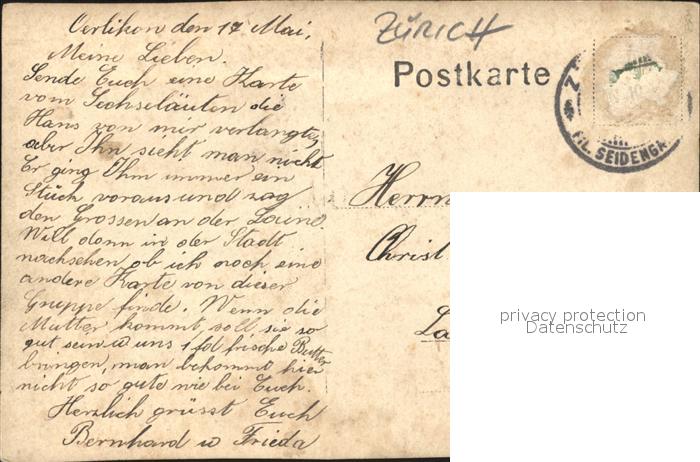 Oerlikon den 17 Mai.
Meine Lieben.
Sende Euch eine Karte
vom Sechseläuten die
Hans von mir verlangte,
aber Ihn sieht man nicht
Er ging Ihm immer ein
Stück voraus und zog
den Grossen an der Leine.
Will dann in der Stadt
nachsehen ob ich noch eine
andere Karte von dieser
Gruppe finde. Wenn die
Mutter kommt, soll sie so
gut sein u uns 1 fd frische Butter
bringen, man bekommt hier
nicht so gute wie bei Euch.
Herzlich grüsst Euch
Bernhard u Frieda
ZÜRICH
Postkarte
FIL. SEIDENG
Herrn
Christ
La
privacy protection
Datenschutz